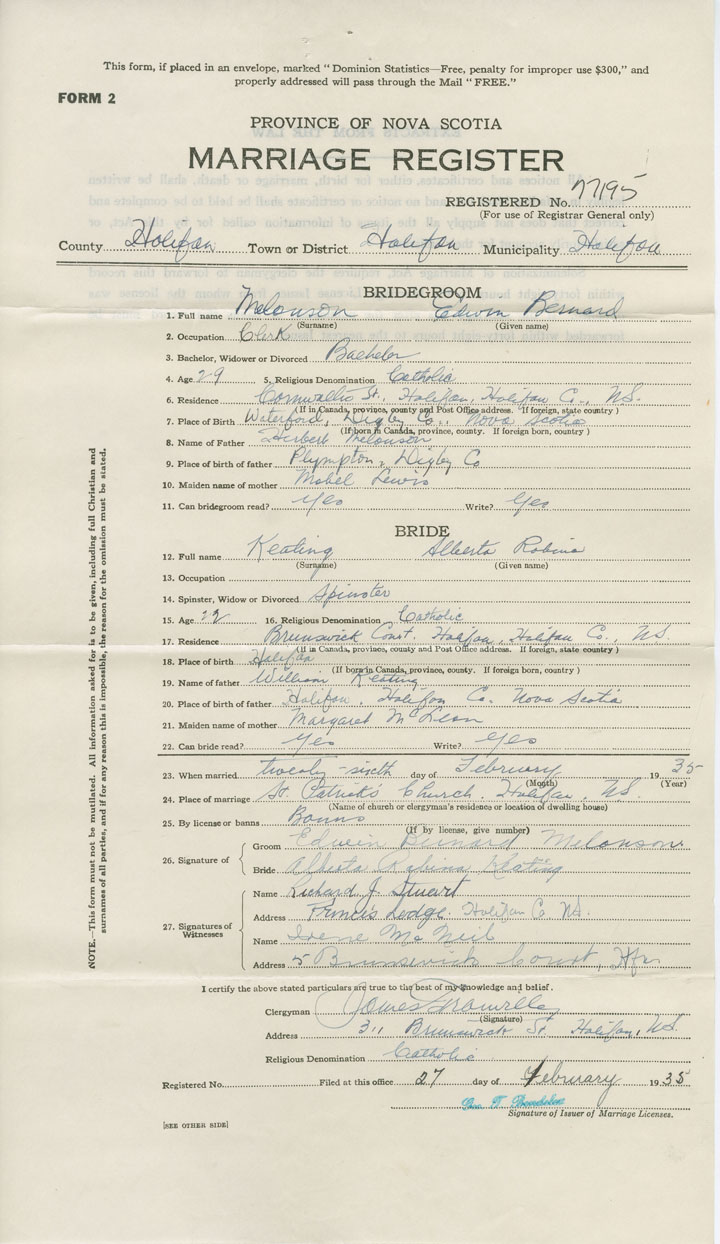 This form, if placed in an envelope, marked "Dominion Statistics—Free, penalty for improper use $300," and
properly addressed will pass through the Mail "FREE."
FORM 2
PROVINCE OF NOVA SCOTIA
MARRIAGE REGISTER
REGISTERED No. 77195
(For use of Registrar General only)
County Halifax Town or District Halifax Municipality Halifax
BRIDEGROOM
1. Full name Melonson Edwin Bernard
(Surname) (Given name)
2. Occupation Clerk
3. Bachelor, Widower or Divorced Bachelor
4. Age 29 5. Religious Denomination Catholic
6. Residence Cornwallis St., Halifax, Halifax Co., N.S.
(If in Canada, province, county and Post Office address. If foreign, state country)
7. Place of Birth Waterford, Digby Co., Nova Scotia
(If born in Canada, province, county. If foreign born, country)
8. Name of Father Herbert Melonson
9. Place of birth of father Plympton, Digby Co
10. Maiden name of mother Mabel Lewis
11. Can bridegroom read? Yes Write? Yes
BRIDE
12. Full name Keating Alberta Robina
(Surname) (Given name)
13. Occupation
14. Spinster, Widow or Divorced Spinster
15. Age 22 16. Religious Denomination Catholic
17. Residence Brunswick Court, Halifax, Halifax Co., N.S.
(If in Canada, province, county and Post Office address. If foreign, state country)
18. Place of birth Halifax
(If born in Canada, province, county. If foreign born, country)
19. Name of father William Keating
20. Place of birth of father Halifax, Halifax Co. Nova Scotia
21. Maiden name of mother Margaret McLean
22. Can bride read? Yes Write? Yes
23. When married twenty-sixth day of February 1935
(Month) (Year)
24. Place of marriage St. Patrick's Church, Halifax, N.S.
(Name of church or clergyman's residence or location of dwelling house)
25. By license or banns Banns
(If by license, give number)
26. Signature of
Groom Edwin Bernard Melonson
Bride Alberta Robina Keating
27. Signatures of Witnesses
Name Richard J. Stuart
Address Francis Lodge. Halifax Co N.S.
Name Irene McNeil
Address 5 Brunswick Court, Hfx
I certify the above stated particulars are true to the best of my knowledge and belief.
Clergyman James
(Signature)
Address 311 Brunswick St. Halifax, N.S.
Religious Denomination Catholic
Registered No. Filed at this office 27 day of February 1935
Geo. T.
Signature of Issuer of Marriage Licenses.
[SEE OTHER SIDE]
NOTE.—This form must not be mutilated. All information asked for is to be given, including full Christian and
surnames of all parties, and if for any reason this is impossible, the reason for the omission must be stated.